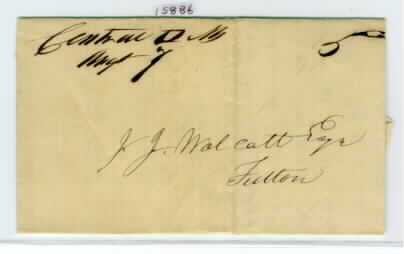 15886
Central 5
Augt 7
J. J. Wolcott Esqr
Fulton